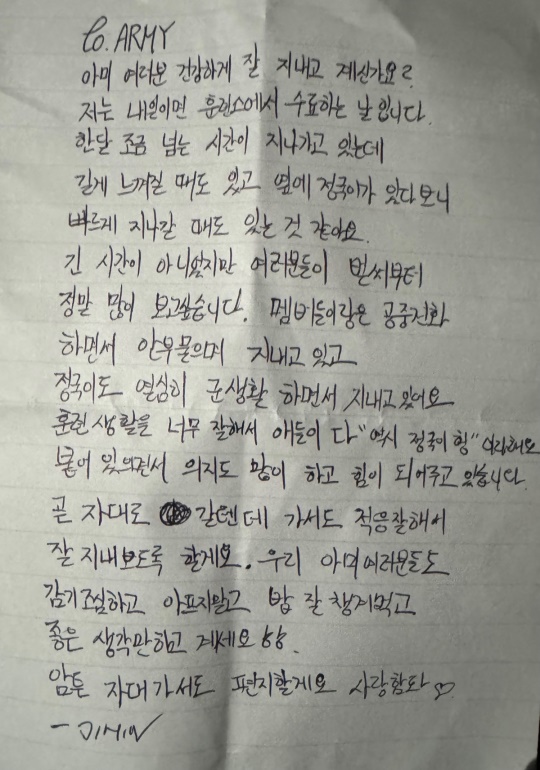 to. ARMY
아미 여러분 건강하게 잘 지내고 계신가요?
저는 내일이면 훈련소에서 수료하는 날 입니다.
한달 조금 넘는 시간이 지나가고 있는데
길게 느껴질 때도 있고 옆에 정국이가 있다보니
빠르게 지나갈 때도 있는 것 같아요.
긴 시간이 아니였지만 여러분들이 벌써부터
정말 많이 보고싶습니다. 멤버들이랑은 공중전화
하면서 안부물으며 지내고 있고
정국이도 열심히 군생활 하면서 지내고 있어요
훈련 생활을 너무 잘해서 애들이 다 "역시 정국이 형" 이랍니다
붙어 있으면서 의지도 많이 하고 힘이 되어주고 있습니다.
곧 자대로 갈텐데 가서도 적응잘해서
잘 지내보도록 할게요. 우리 아미여러분들도
감기조심하고 아프지말고 밥 잘 챙겨먹고
좋은 생각만하고 계세요 ㅎㅎ.
암튼 자대가서도 편지할게요 사랑함돠 ♡
- JIMIN